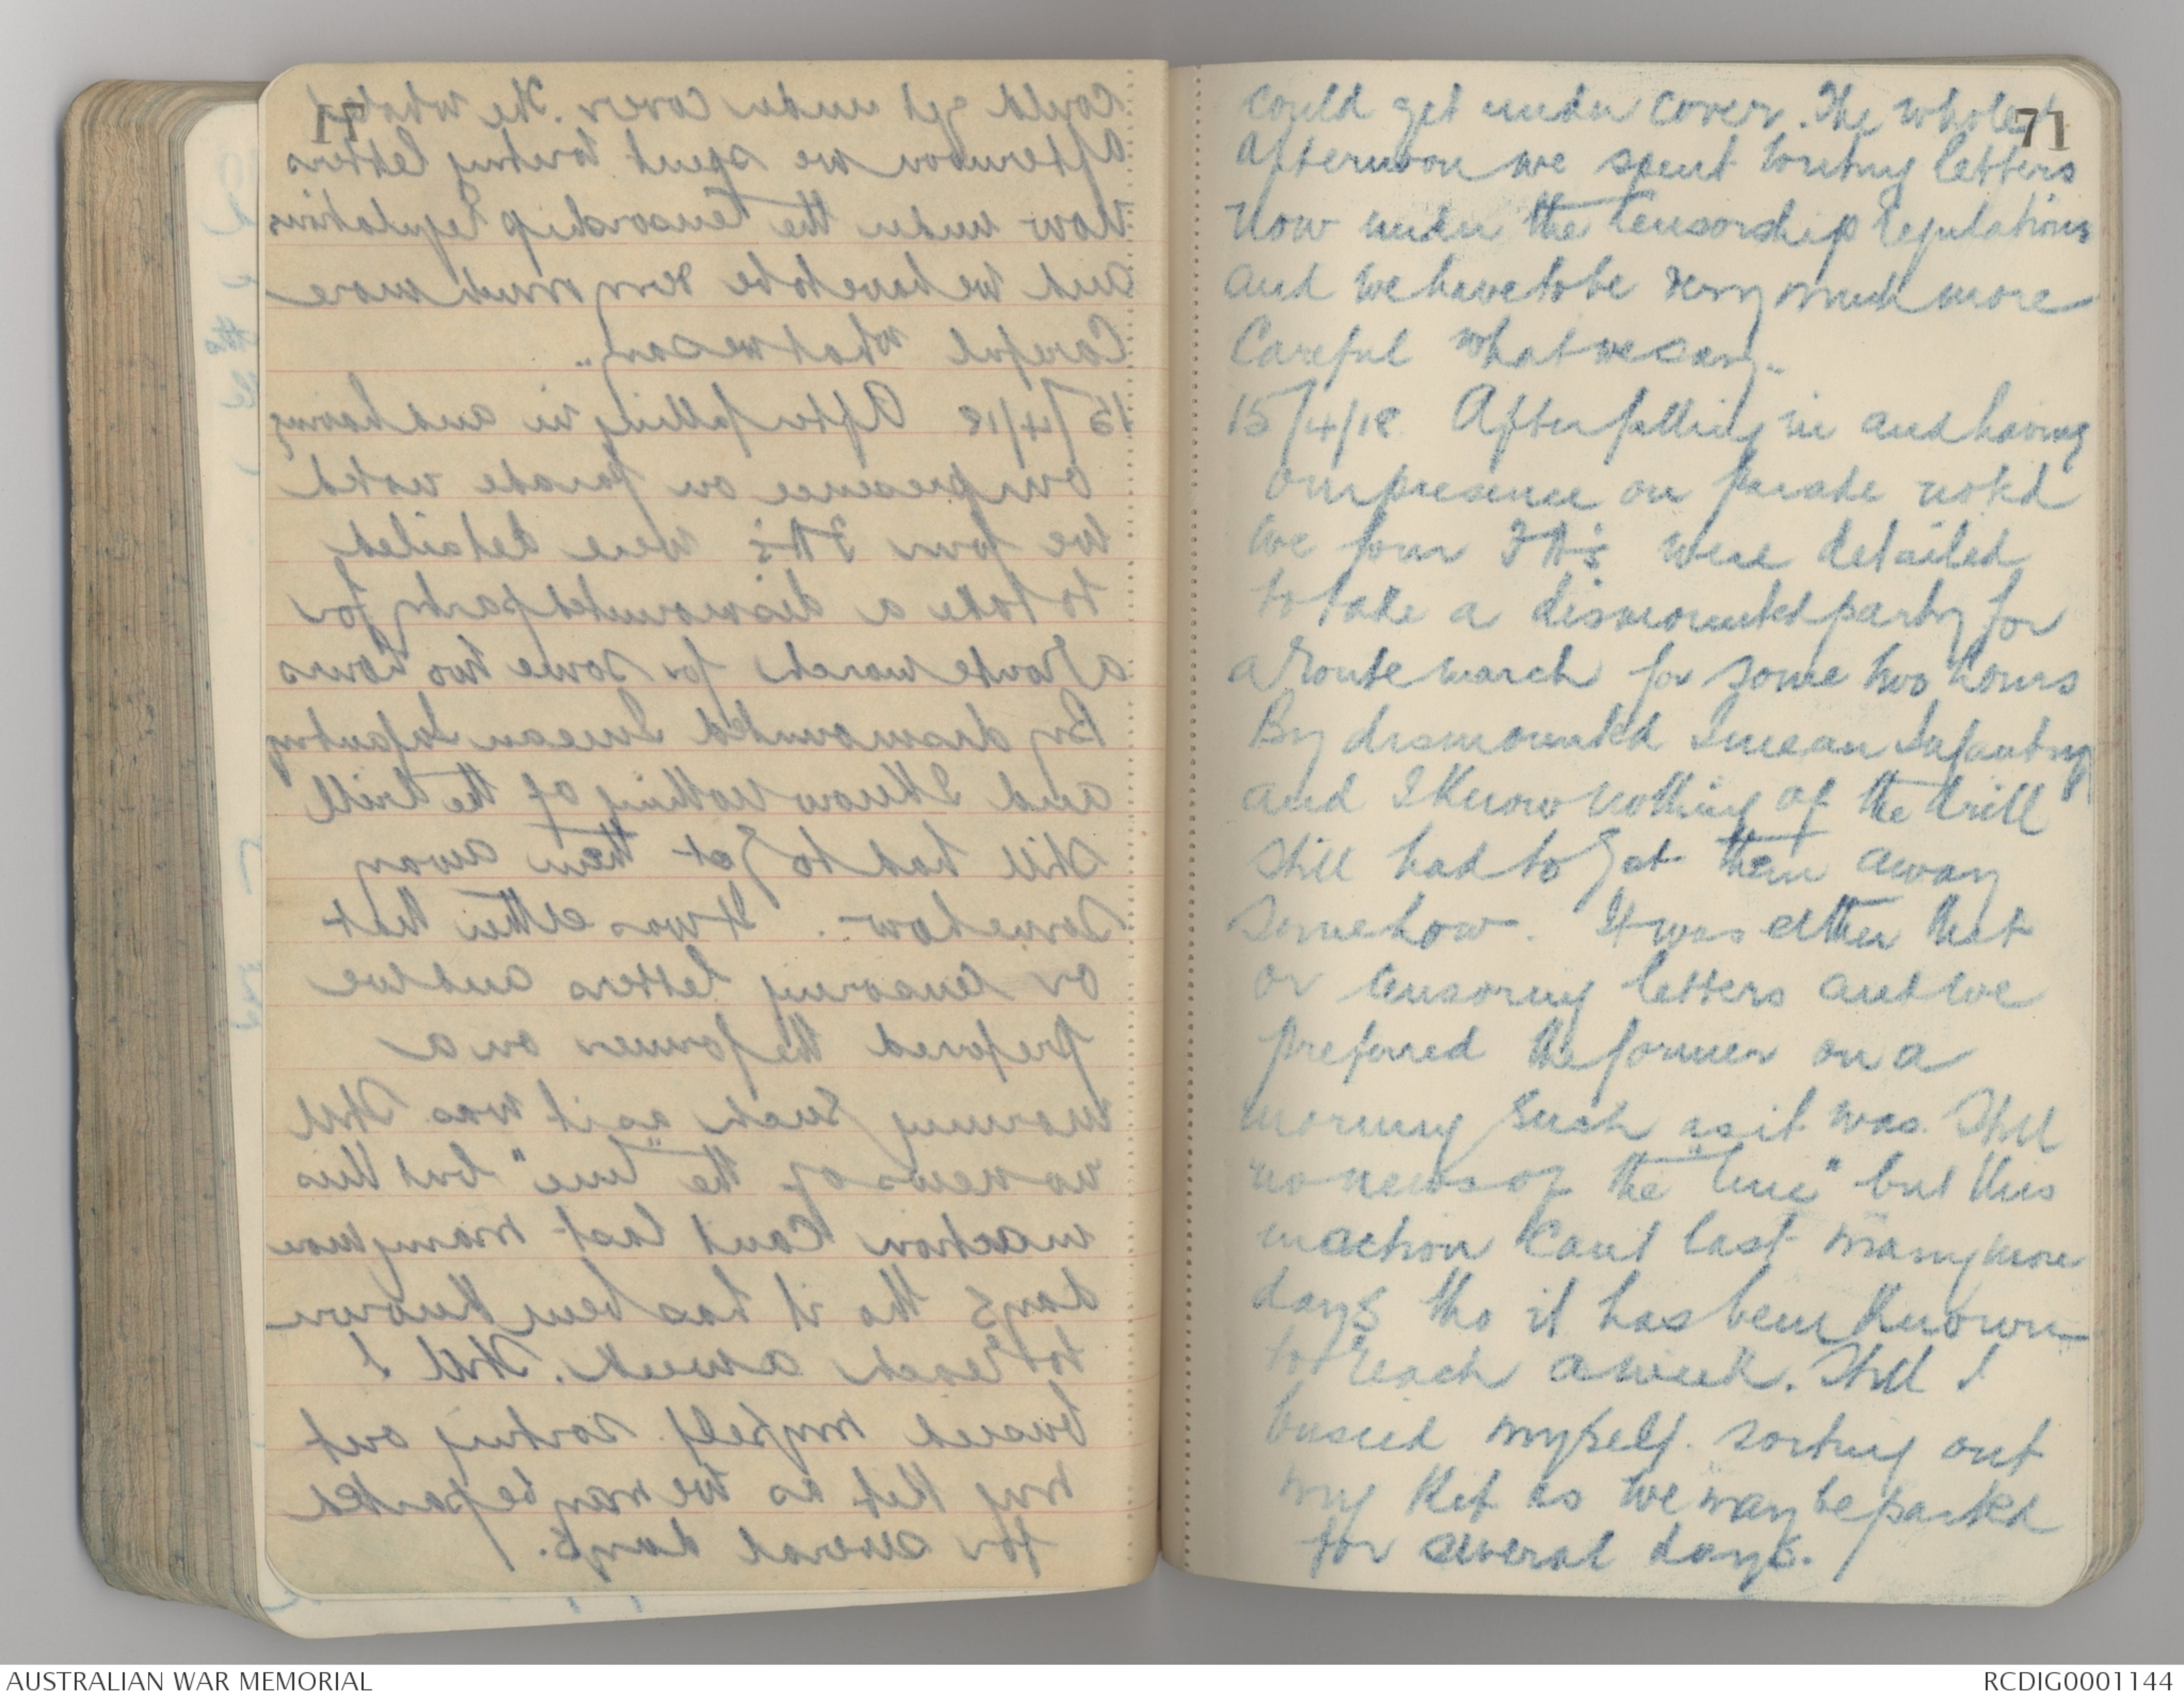 71
could get under cover. The whole
afternoon we spent writing letters
Now under the Censorship regulations
and we have to be very much more
Careful what we say.
15/4/18 After falling in and having
our presence on parade noted
we four were detailed
to take a dismounted party for
a Route march for some two hours
By dismounted I mean Infantry
and I Know nothing of the drill
Still had to get them away
Somehow. It was either that
or censoring letters and we
preferred the former on a
morning Such as it was. Still
no news of the "line" but this
inaction Cant last many more
days tho it has been Known
to reach a week. Still I
busied myself sorting out
my Kit as we may be parted
for several days.
AUSTRALIAN WAR MEMORIAL
RCDIG0001144